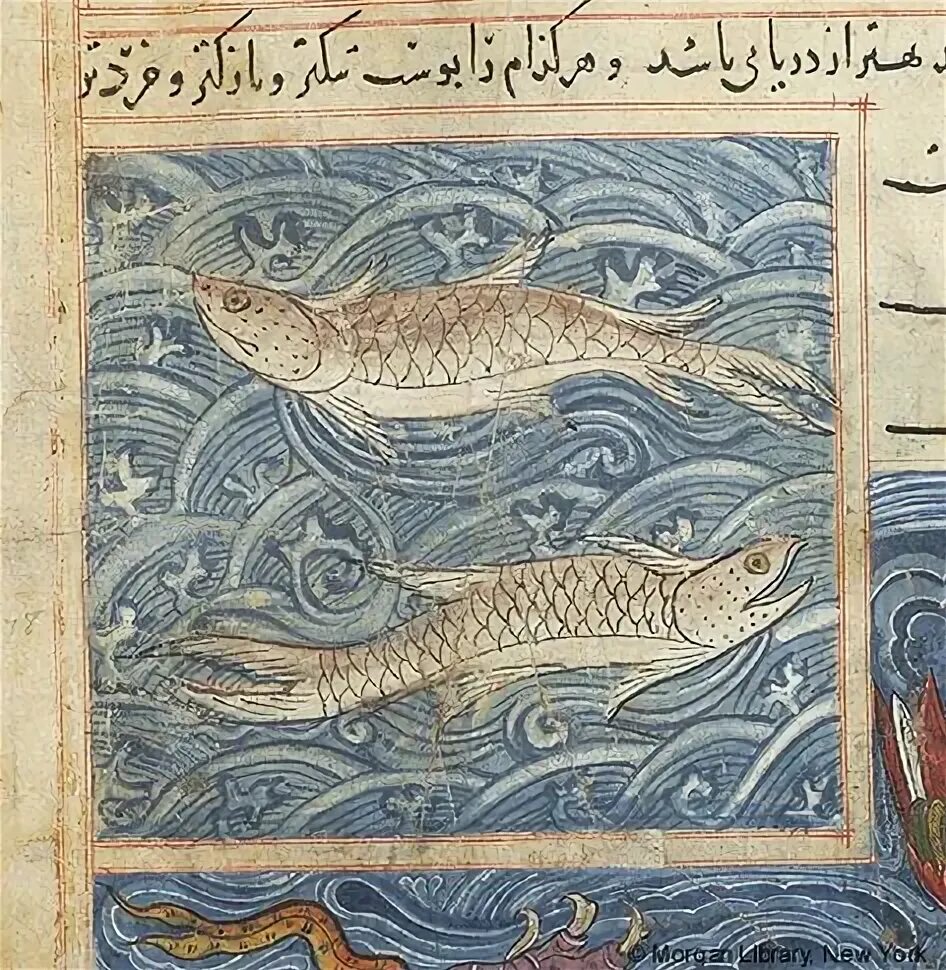 بهتر از دریایی باشد و هر کذام را بوست تنکتر و نازکتر و خردتر
© Morgan Library, New York